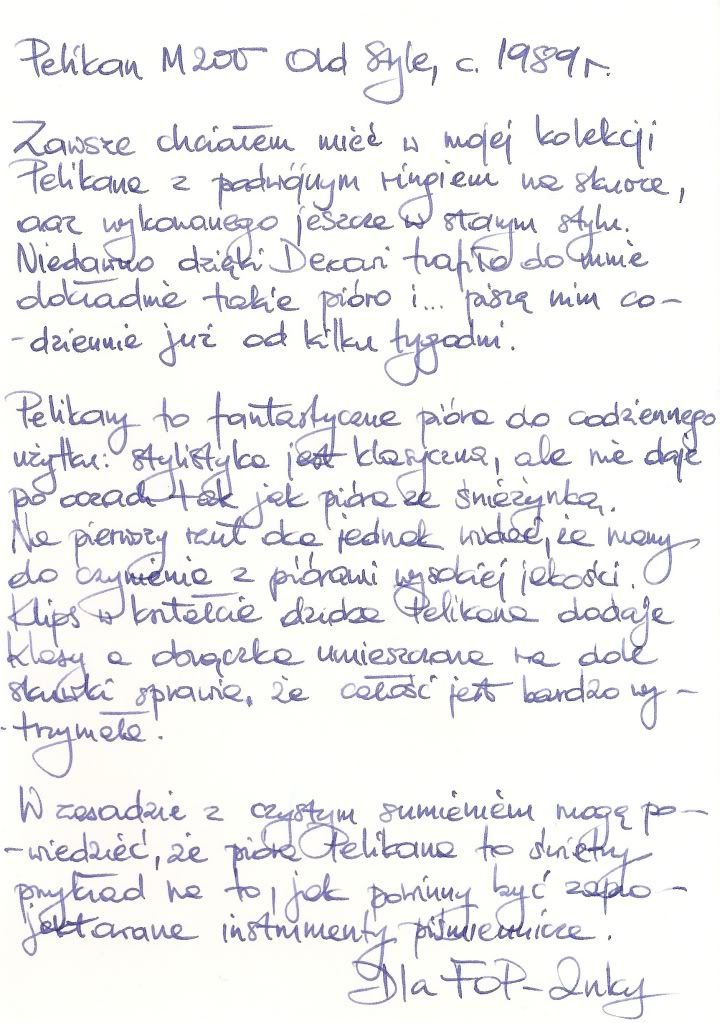 Pelikan M200 Old Style, c. 1989r.
Zawsze chciałem mieć w mojej kolekcji
Pelikana z podwójnym ringiem na skuwce,
oraz wykonanego jeszcze w starym stylu.
Niedawno dzięki Dexari trafiło do mnie
dokładnie takie pióro i... piszę nim co-
-dziennie już od kilku tygodni.
Pelikany to fantastyczne pióra do codziennego
użytku: stylistyka jest klasyczna, ale nie daje
po oczach tak jak pióra ze śnieżynką.
Na pierwszy rzut oka jednak widać, że mamy
do czynienia z piórami wysokiej jakości.
Klips w kształcie dzioba Pelikana dodaje
klasy a obrączka umieszczona na dole
skuwki sprawia, że całość jest bardzo wy-
-trzymała.
W zasadzie z czystym sumieniem mogę po-
-wiedzieć, że pióra Pelikana to świetny
przykład na to, jak powinny być zapro-
jektowane instrumenty piśmiennicze.
Dla FOP-Inky